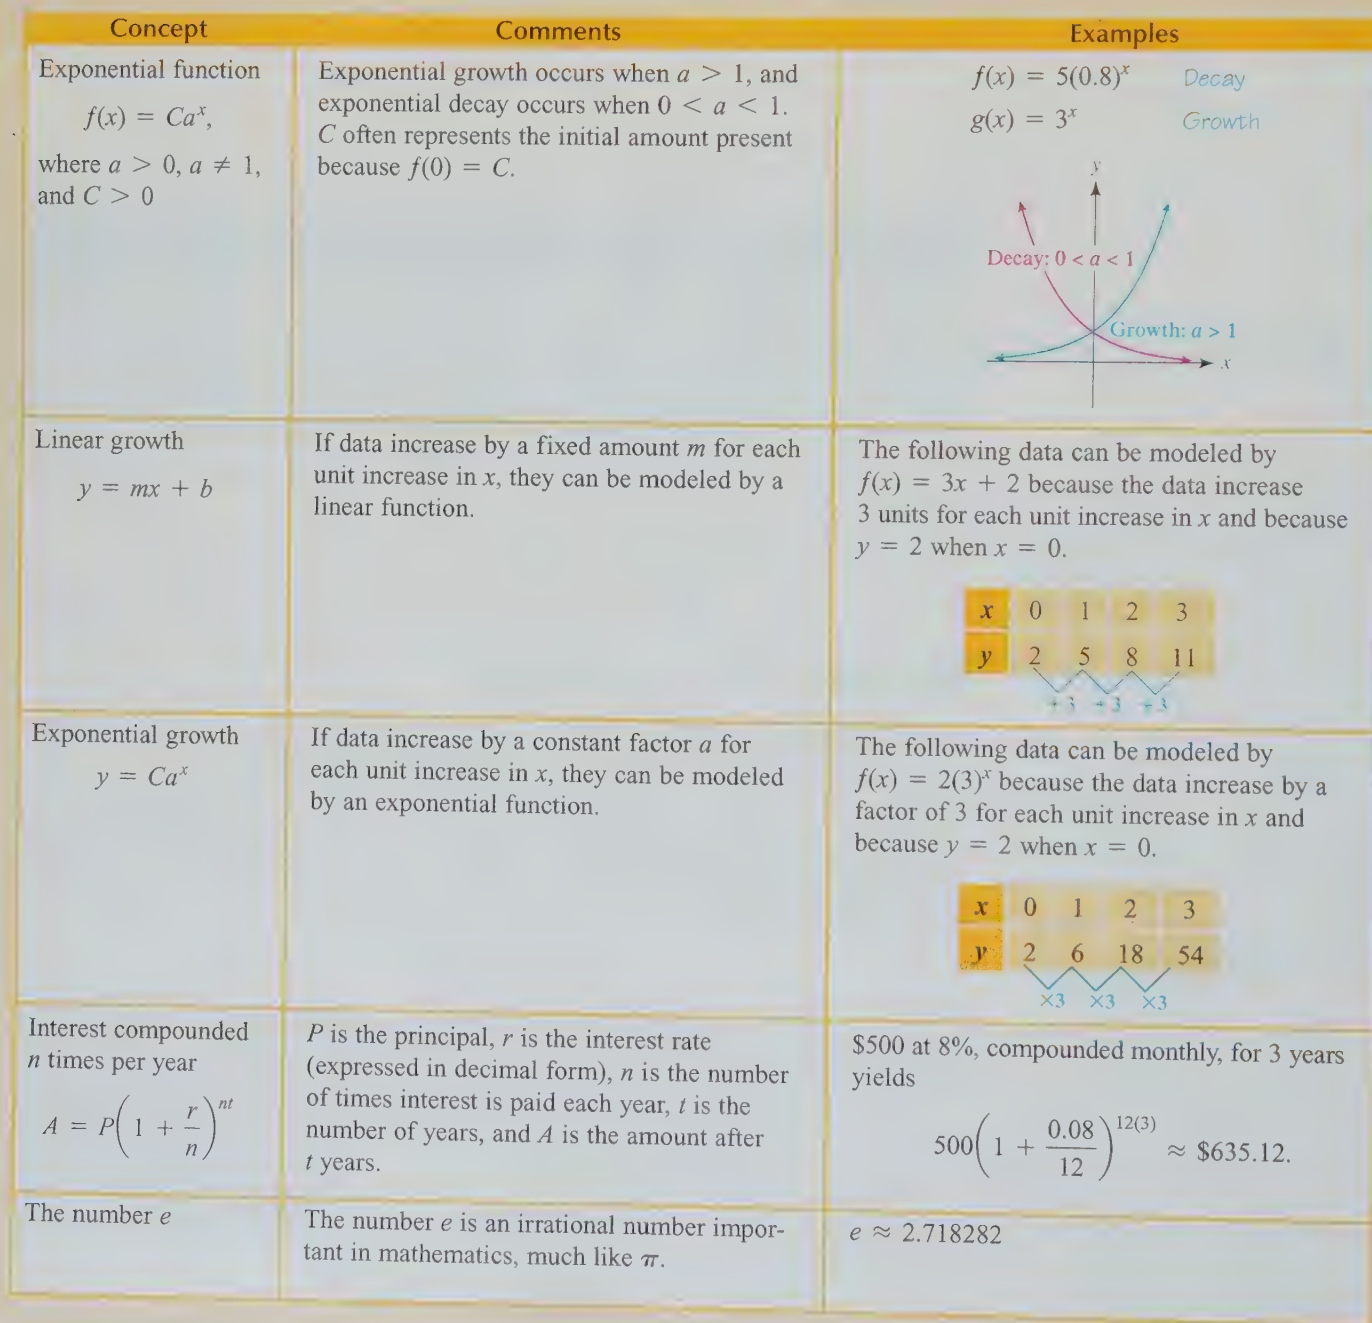 Concept
Comments
Examples
Exponential function
f(x) = Caˣ,
where a > 0, a ≠ 1,
and C > 0
Exponential growth occurs when a > 1, and
exponential decay occurs when 0 < a < 1.
C often represents the initial amount present
because f(0) = C.
f(x) = 5(0.8)ˣ Decay
g(x) = 3ˣ Growth
y
Decay: 0 < a < 1
Growth: a > 1
x
Linear growth
y = mx + b
If data increase by a fixed amount m for each
unit increase in x, they can be modeled by a
linear function.
The following data can be modeled by
f(x) = 3x + 2 because the data increase
3 units for each unit increase in x and because
y = 2 when x = 0.
x 0 1 2 3
y 2 5 8 11
+3 +3 +3
Exponential growth
y = Caˣ
If data increase by a constant factor a for
each unit increase in x, they can be modeled
by an exponential function.
The following data can be modeled by
f(x) = 2(3)ˣ because the data increase by a
factor of 3 for each unit increase in x and
because y = 2 when x = 0.
x 0 1 2 3
y 2 6 18 54
×3 ×3 ×3
Interest compounded
n times per year
A = P(1 + r/n)ⁿᵗ
P is the principal, r is the interest rate
(expressed in decimal form), n is the number
of times interest is paid each year, t is the
number of years, and A is the amount after
t years.
$500 at 8%, compounded monthly, for 3 years
yields
500(1 + 0.08/12)¹²⁽³⁾ ≈ $635.12.
The number e
The number e is an irrational number impor-
tant in mathematics, much like π.
e ≈ 2.718282